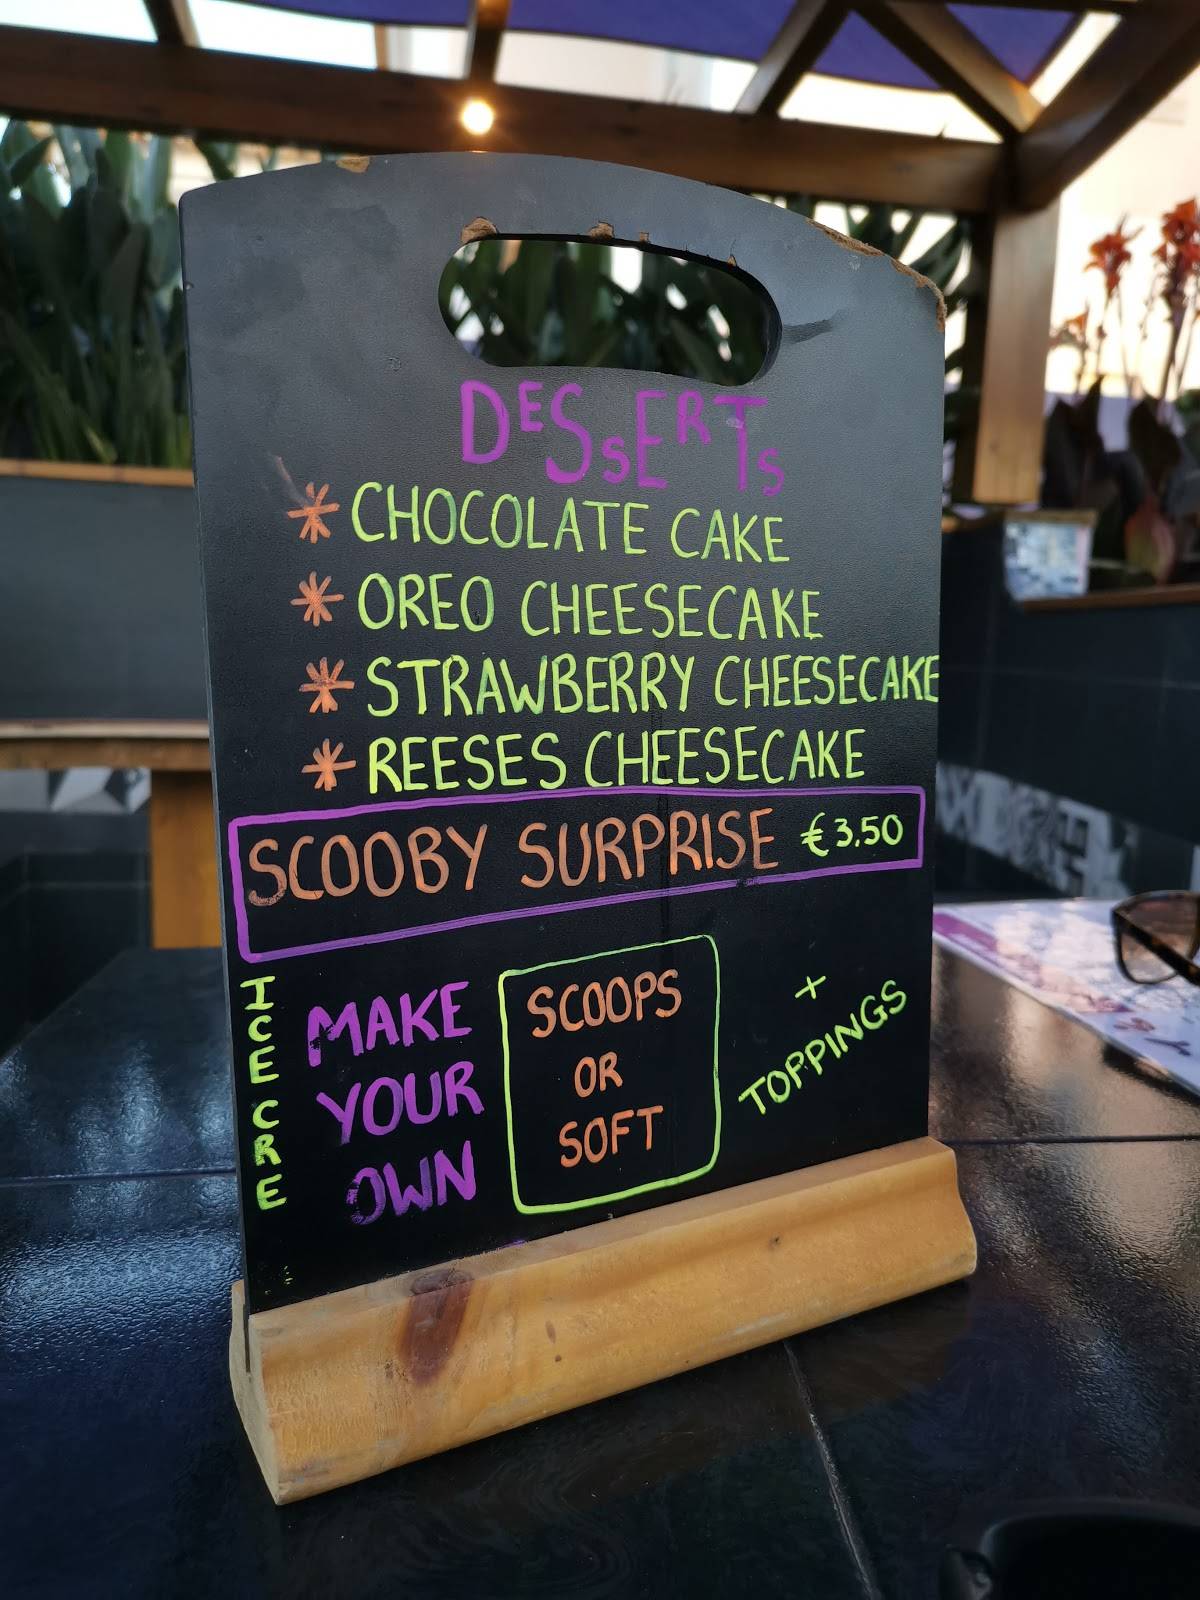 DESSERTS
* CHOCOLATE CAKE
* OREO CHEESECAKE
* STRAWBERRY CHEESECAKE
* REESES CHEESECAKE
SCOOBY SURPRISE €3.50
ICE CRE
MAKE
YOUR
OWN
SCOOPS
OR
SOFT
+
TOPPINGS